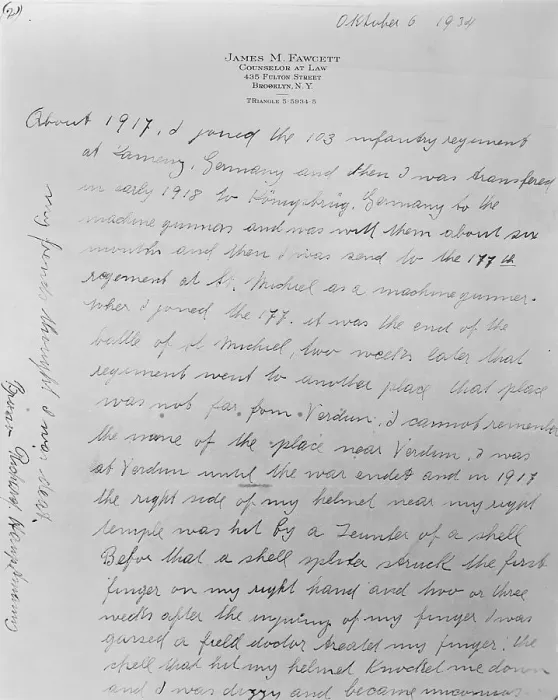 (2).
Oktober 6 1934
JAMES M. FAWCETT
COUNSELOR AT LAW
435 FULTON STREET
BROOKLYN, N. Y.
TRIANGLE 5-5934-5
About 1917, I joined the 103 infantry regiment
at Kamenz, Germany and then I was transfered
in early 1918 to Königsbrüg, Germany to the
machine gunners and was with them about six
months and then I was send to the 177 th
regement at St. Michiel as a machine gunner.
wher I joined the 177. it was the end of the
battle of St Michiel, two weeks later that
regiment went to another place that place
was not far from Verdun. I cannot remember
the name of the place near Verdun. I was
at Verdun until the war endet and in 1917
the right side of my helmet near my right
temple was hit by a of a shell
Befor that a shell struck the first
finger on my right hand and two or three
weeks after the of my finger I was
a field doctor treatd my finger. the
shell that hit my helmet Knocket me down
and I was dizzy and became
my thought I was
Bruno Richard Hauptmann